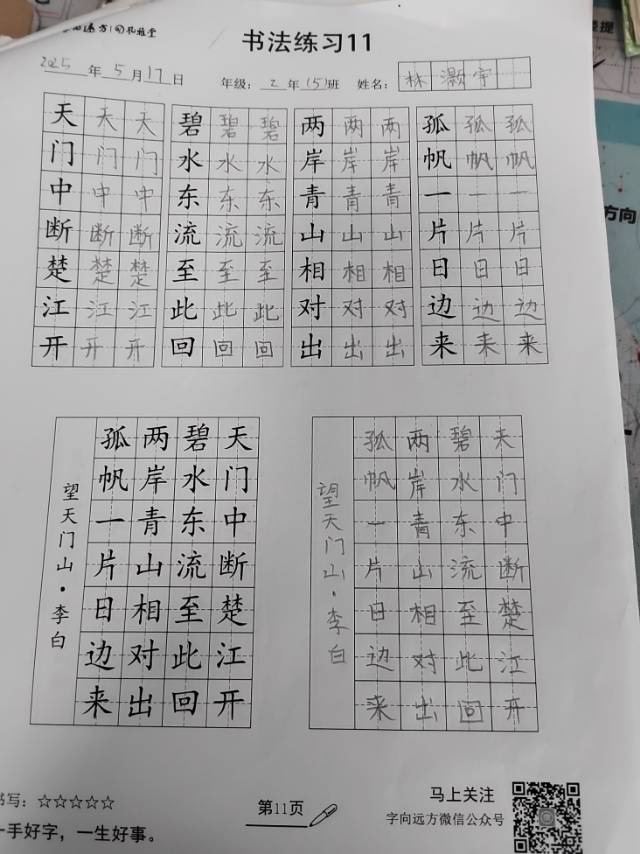 书法练习11
2025年5月17日 年级：2年(5)班 姓名：林灏宇
天天天 碧碧碧 两两两 孤孤孤
门门门 水水水 岸岸岸 帆帆帆
中中中 东东东 青青青 一一一
断断断 流流流 山山山 片片片
楚楚楚 至至至 相相相 日日日
江江江 此此此 对对对 边边边
开开开 回回回 出出出 来来来
天门中断楚江开
碧水东流至此回
两岸青山相对出
孤帆一片日边来
望天门山·李白
天门中断楚江开
碧水东流至此回
两岸青山相对出
孤帆一片日边来
望天门山·李白
书写：☆☆☆☆☆
一手好字，一生好事。
第11页
马上关注
字向远方微信公众号
方向